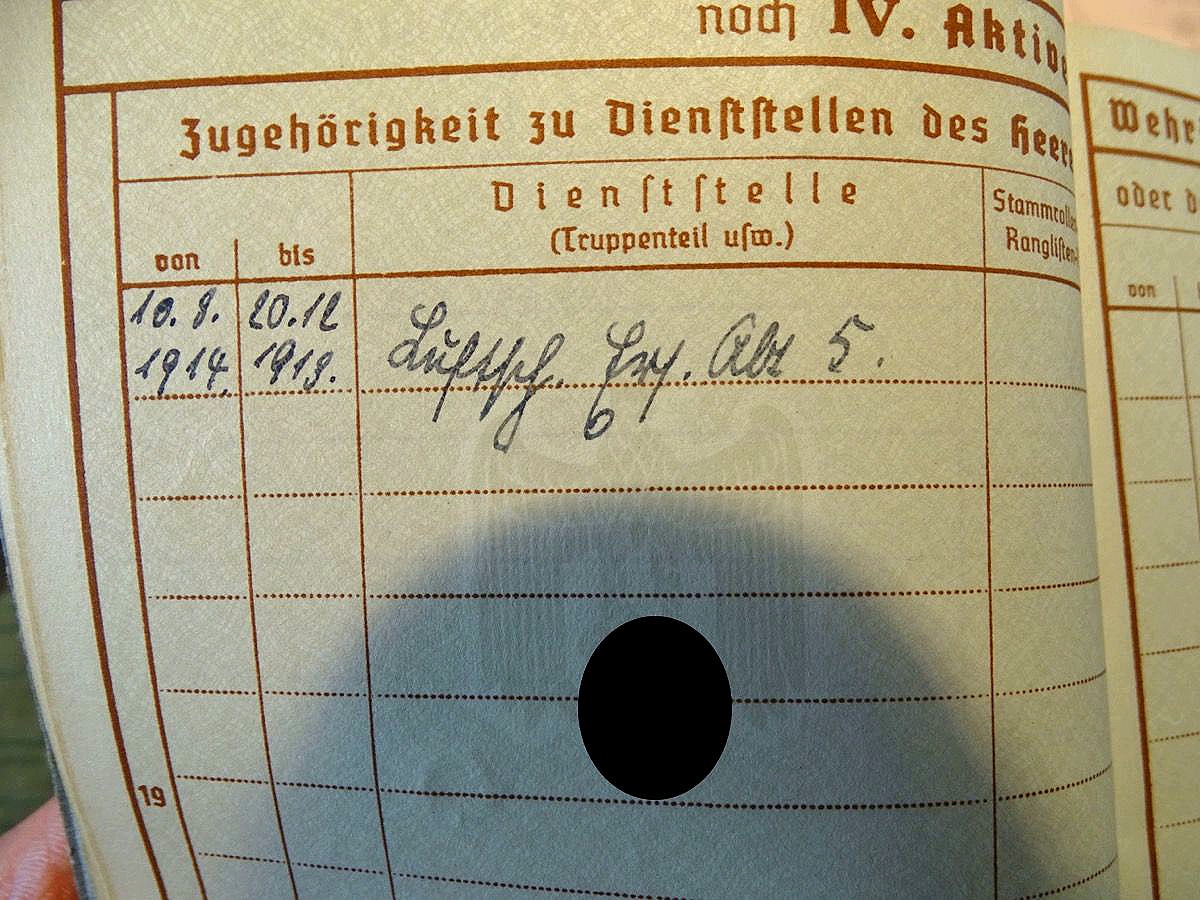 noch IV. Aktive
Zugehörigkeit zu Dienststellen des Heere
von bis
Dienststelle
(Truppenteil usw.)
Stammrollen
Ranglisten-
10.8. 20.12
1914. 1919.
Luftsch. Ers. Abt 5.
19
Wehr
oder d
von